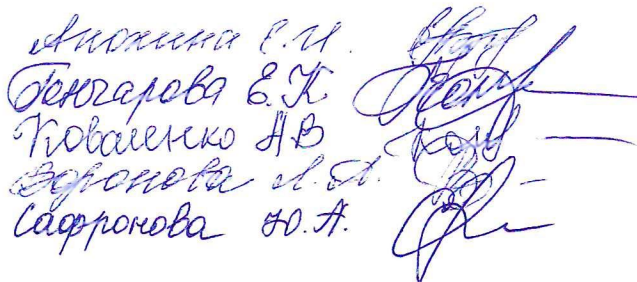 Анохина Е.И.
Гончарова Е.К
Коваленко А В
Воронова Л.А.
Сафронова Ю.А.